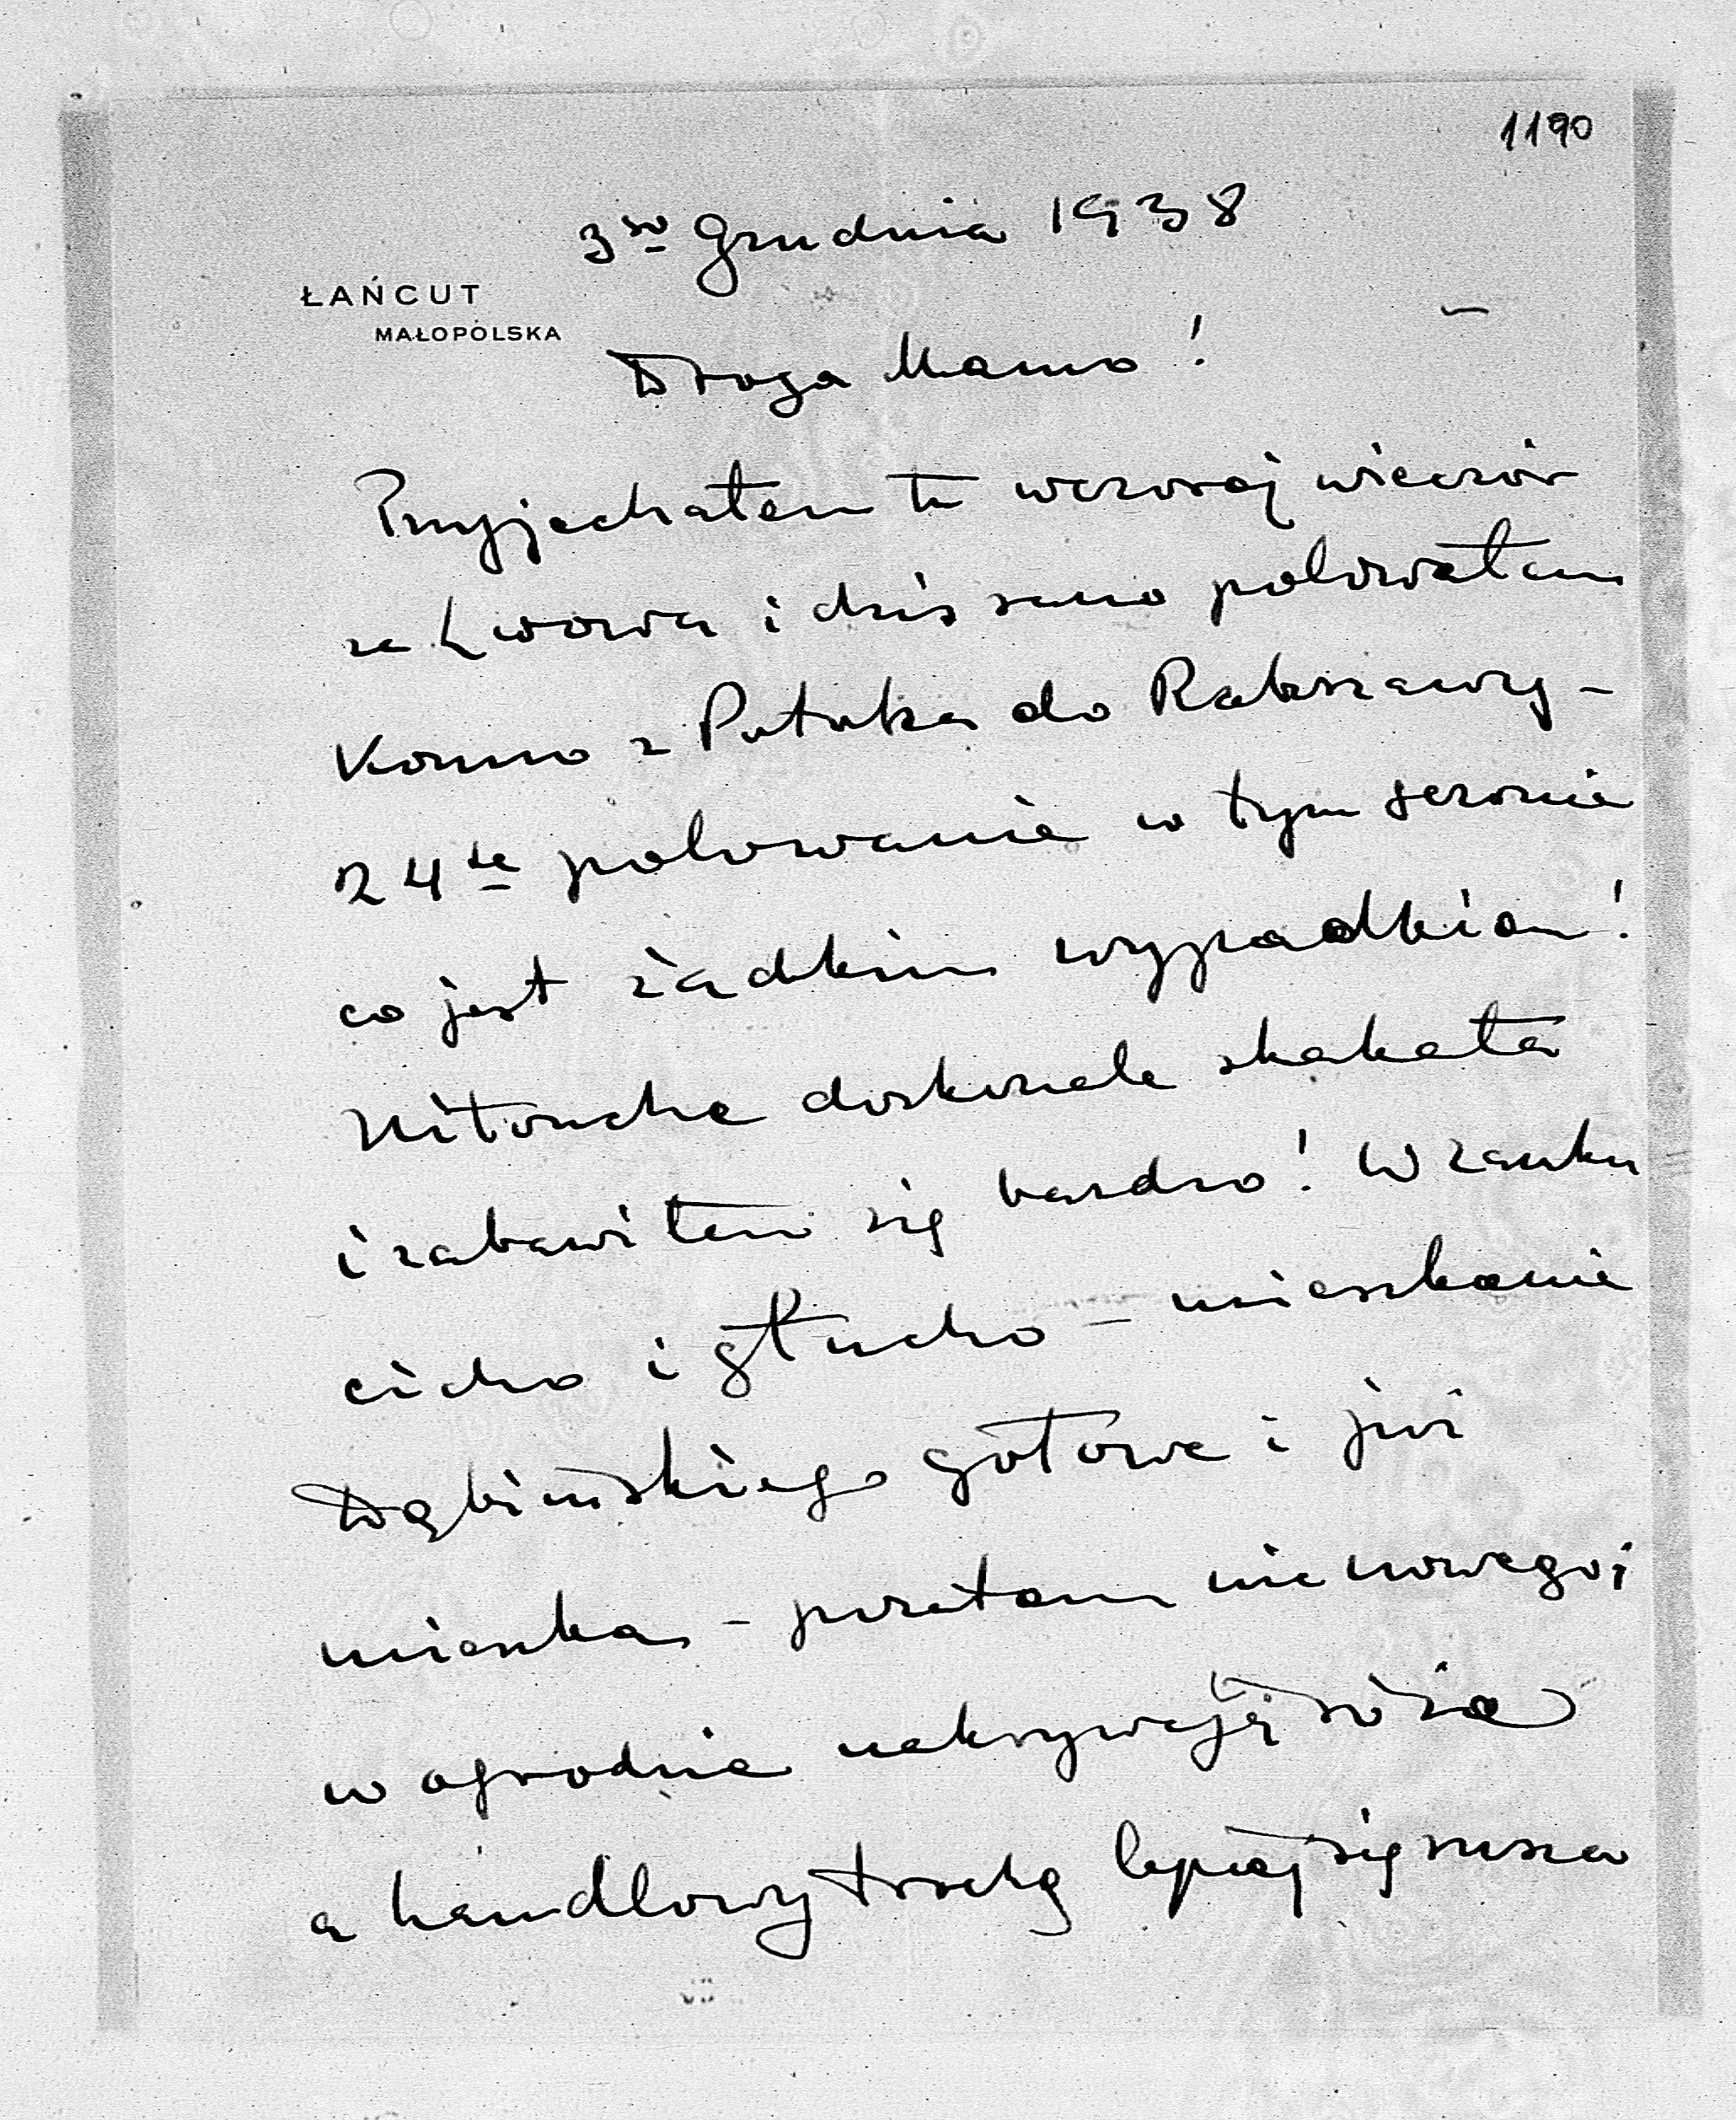 1190
3go Grudnia 1938
ŁAŃCUT
MAŁOPOLSKA
Droga Mamo!
Przyjechałem tu wczoraj wieczór
ze Lwowa i dziś rano polowałem
Konno z Potoka do Rakszawy -
24te polowanie w tym sezonie
co jest żadkim wypadkiem!
Nitouche doskonale skakała
i zabawiłem się bardzo! W zamku
cicho i głucho - mieszkanie
Dąbińskiego gotowe i już
mieszka - pozatem nic nowego i
w ogrodzie nakrywają róże
a handlowy trochę lepiej się rusza